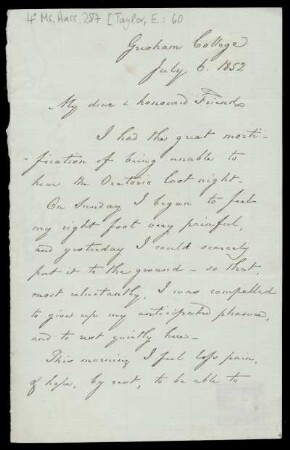 4° Ms. Hass. 287 [Taylor, E.: 60
Gresham College
July 6. 1852
My dear & honoured Friend,
I had the great morti-
-fication of being unable to
hear the Oratorio last night.
On Sunday I began to feel
my right foot very painful,
and yesterday I could scarcely
put it to the ground – so that,
most reluctantly, I was compelled
to give up my anticipated pleasure,
and to rest quietly here –
This morning I feel less pain,
& hope, by rest, to be able to